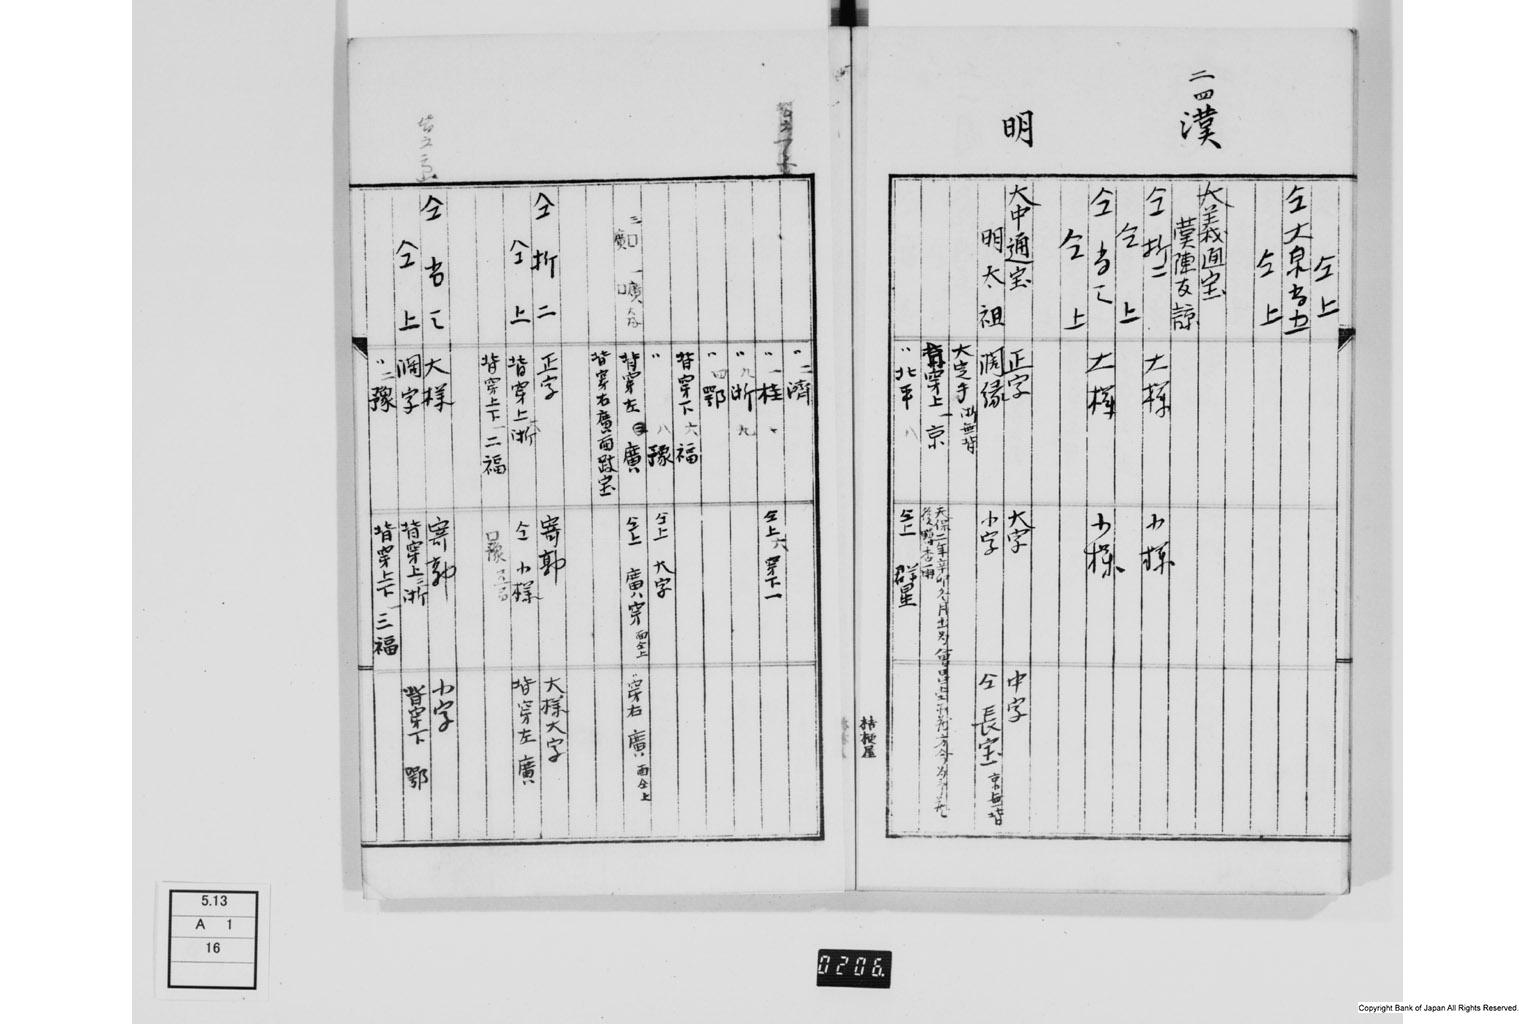 二四漢
仝上
仝大泉当五
仝上
大義通宝
漢陳友諒
仝折二
大様
小様
仝上
仝当三
大様
小様
仝上
明
大中通宝
正字
大字
中字
明太祖
濶縁
小字
仝長宝 京無背
大定手 浙無背
背穿上一京
〃北平八
仝上 群星
桔梗屋
〃二濟
〃一桂
仝上六穿下一
〃九浙九
〃四鄂
背穿下六福
〃八豫
仝上 大字
背穿左 廣
仝上 廣穿 面仝上
〃穿右 廣 面仝上
背穿右廣面跂宝
仝折二
正字
寄郭
大様大字
仝上
背穿上 浙
仝小様
背穿左 廣
背穿上下一二福
仝当三
大様
寄郭
小字
仝上
濶字
背穿上三浙
背穿下 鄂
〃二豫
背穿上下一三福
5.13
A 1
16
0206.
Copyright Bank of Japan All Rights Reserved.